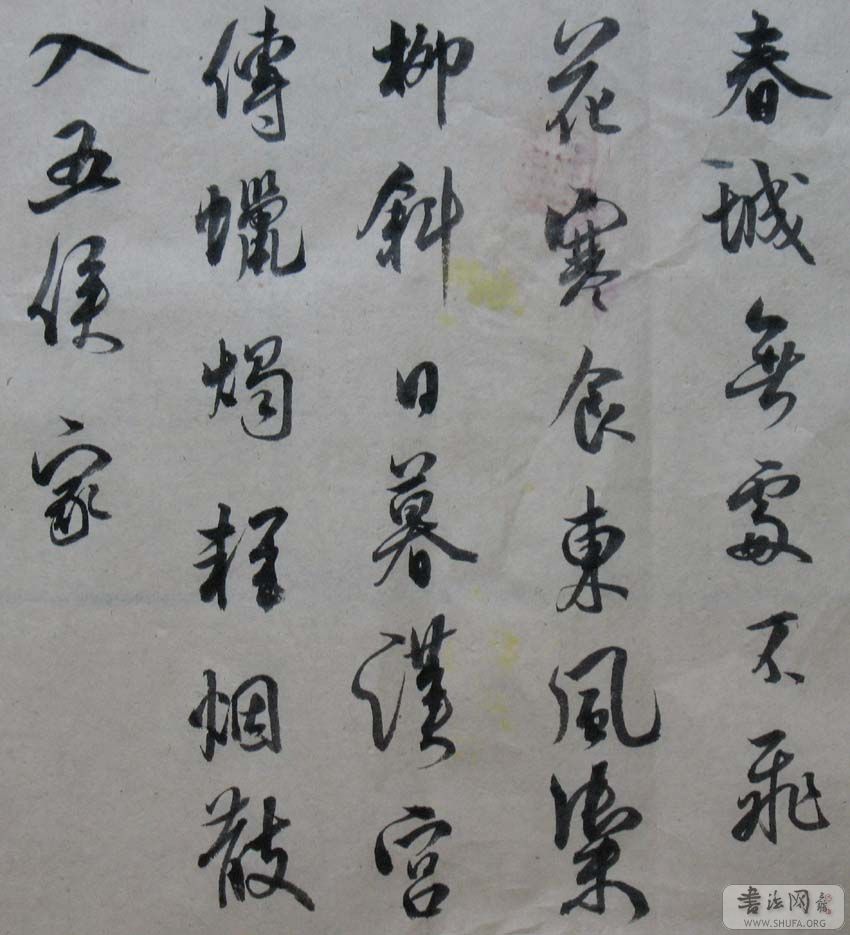 春城無處不飛
花寒食東風禦
柳斜日暮漢宮
傳蠟燭輕烟散
入五侯家
書法网
WWW.SHUFA.ORG